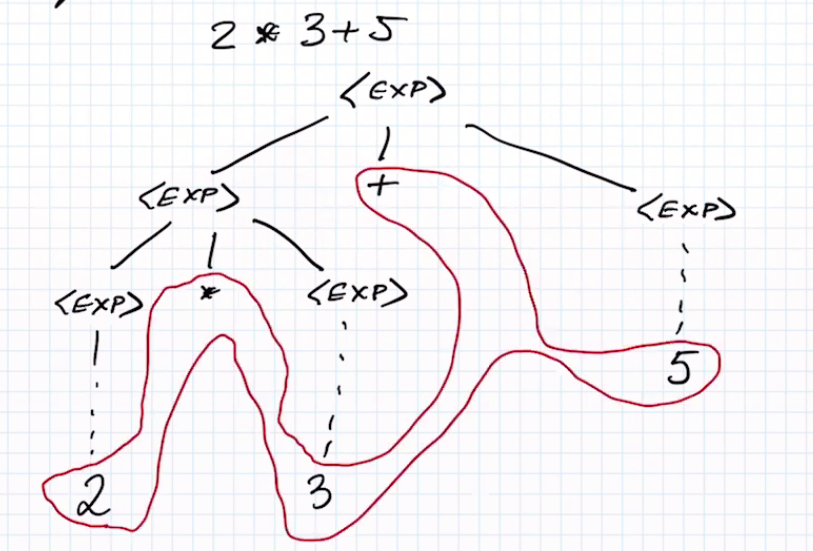 2 * 3 + 5
<EXP>
+
<EXP>
<EXP>
*
<EXP>
<EXP>
5
2
3